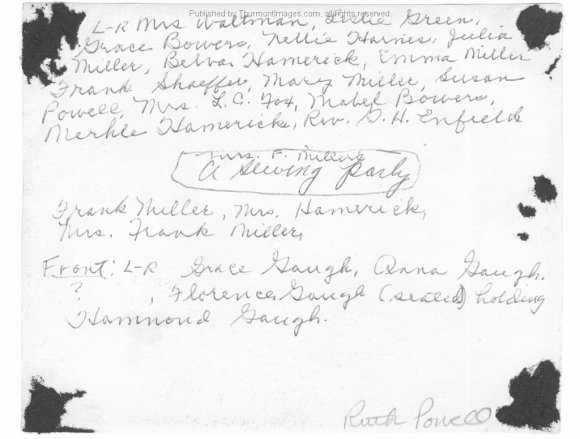 Published by ThurmontImages.com, all rights reserved.
L-R Mrs Waltman, Green,
Grace Bowers, Nellie Harnes, Julia
Miller, Belva Hamerick, Emma Miller
Frank Shaeffer, Mary Miller, Susan
Powell, Mrs. L.C. Fox, Mabel Bowers,
Merhle Hamerick, Rev. D. H. Enfield
Mrs. F. Millers
A Sewing party
Frank Miller, Mrs. Hamerick,
Mrs. Frank Miller,
Front: L-R Grace Gaugh, Anna Gaugh.
? , Florence Gaugh (seated) holding
Hammond Gaugh.
Ruth Powell